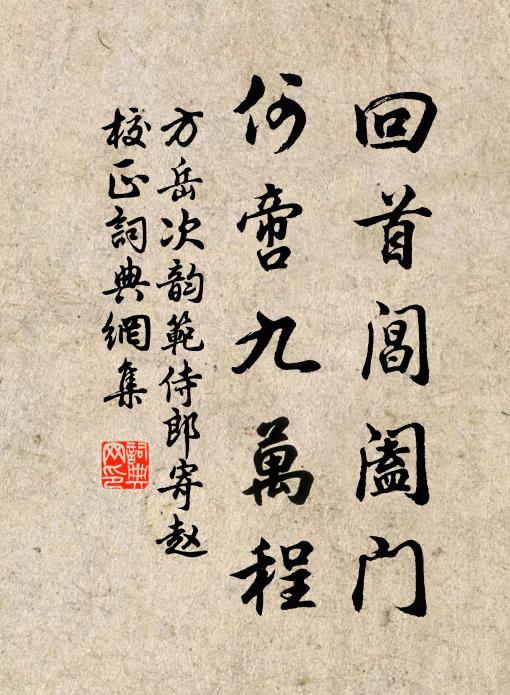 回首閶阖门
何啻九萬程
方岳次韵範侍郎寄赵
校正詞典網集
詞典网印